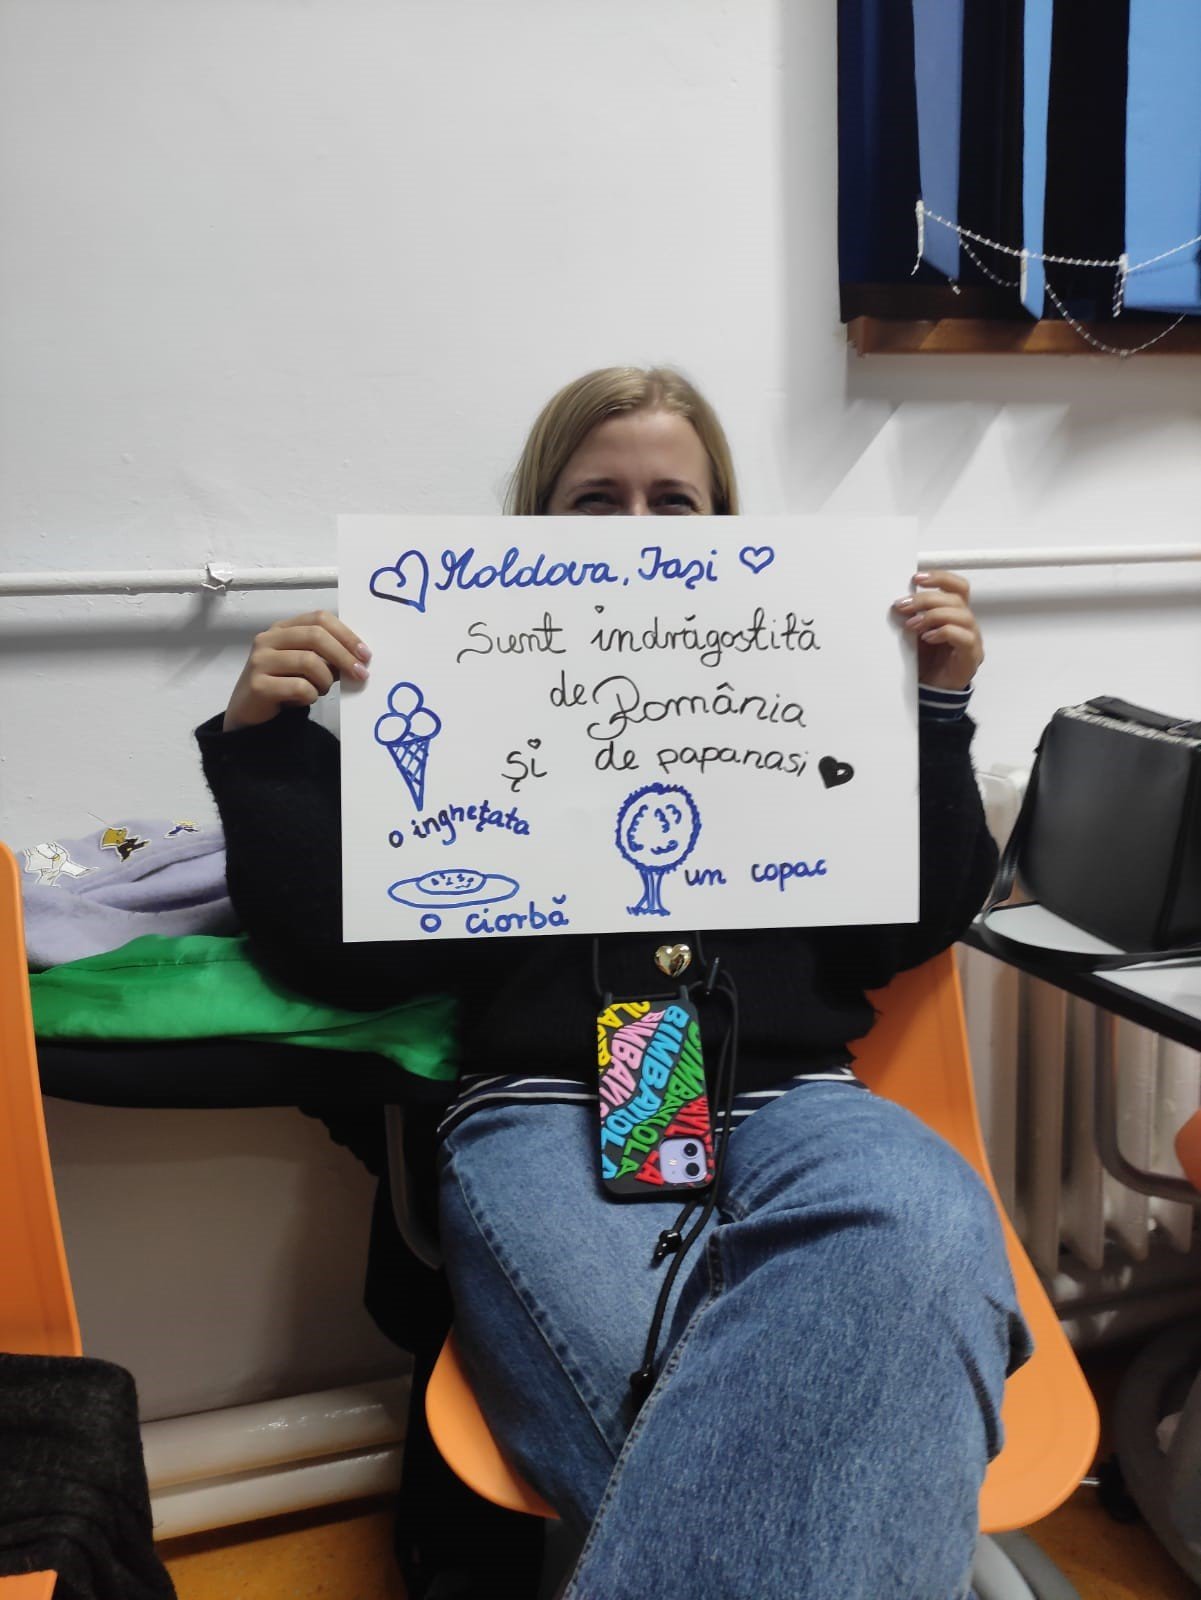 Moldova, Iași
Sunt îndrăgostită
de România
și de papanasi
o inghețata
un copac
o ciorbă
BIMBAYLOLA
BIMBAYLOLA
BIMBAYLOLA